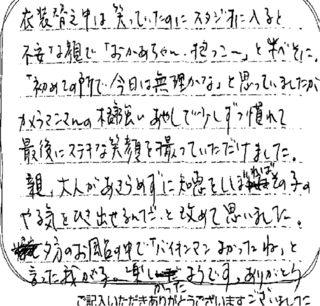 衣装替え中は笑っていたのにスタジオに入ると
不安な顔で「おかあちゃん、抱っこ〜」と半べそに。
「初めての所で今日は無理かな」と思っていましたが
カメラマンさんの根強いあやしで少しずつ慣れて
最後にステキな笑顔を撮っていただけました。
親、大人があきらめずに知恵をしぼればその子の
やる気をひき出せるんだ。と改めて思いました。
夕方のお風呂の中で「バイキンマンよかったね」と
言った我が子。楽しかったようです。ありがとう
ございました
ご記入いただきありがとうございます